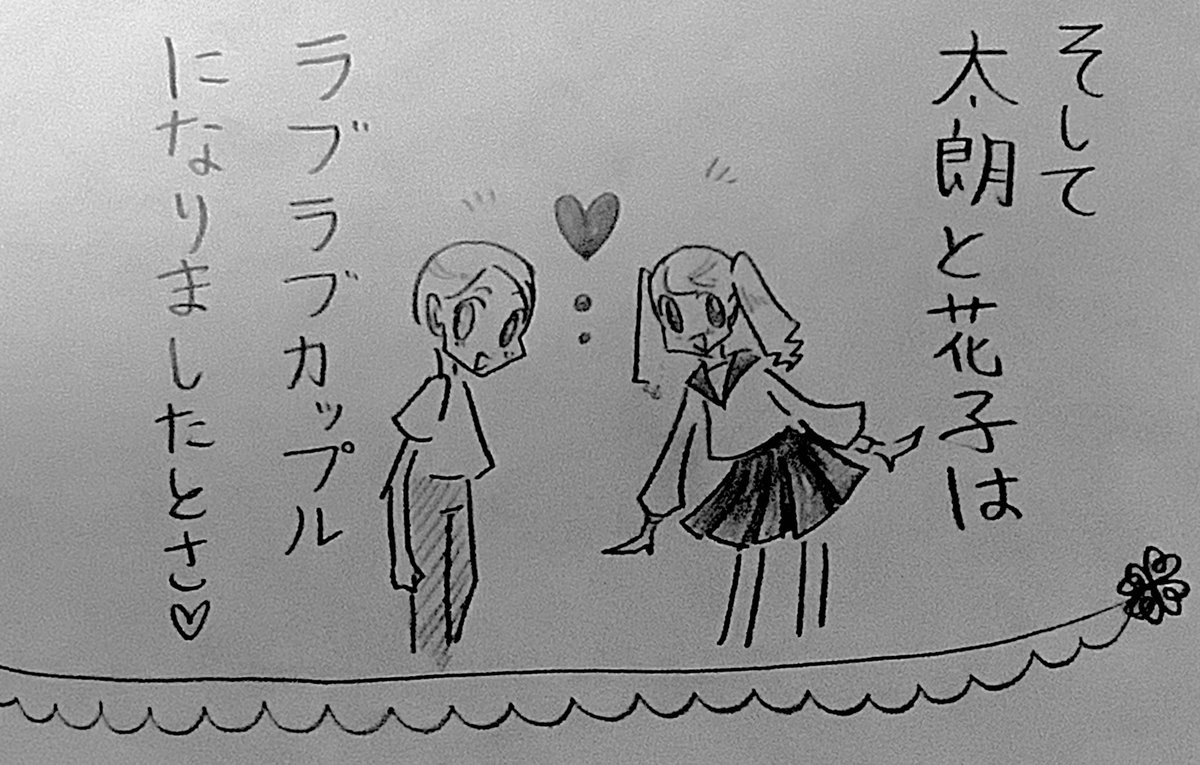 そして
太朗と花子は
ラブラブカップル
になりましたとさ♡